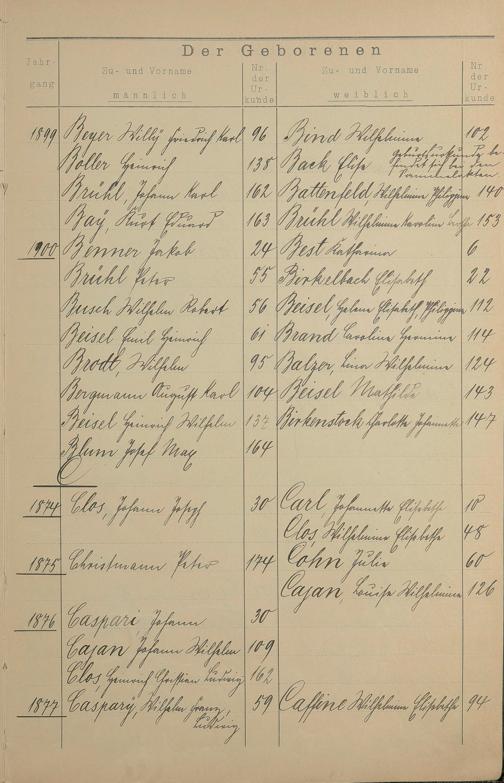 Der Geborenen
Jahr- gang | Zu- und Vorname männlich | Nr. der Ur- kunde | Zu- und Vorname weiblich | Nr. der Ur- kunde
1899 Beyer Willy Friedrich Karl 96 Bind Wilhelmine 102
Böller Heinrich 138 Back Elise Geburtsurkunde be
findet sich bei den
Sammelakten.
Brühl, Johann Karl 162 Battenfeld Wilhelmine Philippine 140
Bay, Kurt Eduard 163 Brühl Wilhelmine Karoline 153
1900 Benner Jakob 24 Best Katharina 6
Brühl Peter 55 Birkelbach Elisabeth 22
Busch Wilhelm Robert 56 Beisel Helene Elisabeth, Philippine 112
Beisel Emil Heinrich 61 Brand Caroline Hermine 114
Brodt, Wilhelm 95 Balzer, Lina Wilhelmine 124
Bergmann August Karl 104 Beisel Mathilde 143
Beisel Heinrich Wilhelm 137 Birkenstock Charlotte Johannette 147
Blum Josef Max 164
C
1874 Clos, Johann Joseph 30 Carl, Johannette Elisabethe 10
Clos, Wilhelmine Elisabethe 48
1875 Christmann Peter 174 Cohn Julie 60
Cajan, Louise Wilhelmine 126
1876 Caspari, Johann 30
Cajan Johann Wilhelm 109
Clos, Heinrich Christian Ludwig 162
1877 Caspary, Wilhelm Franz, 59 Caffine Wilhelmine Elisabethe 94
Ludwig